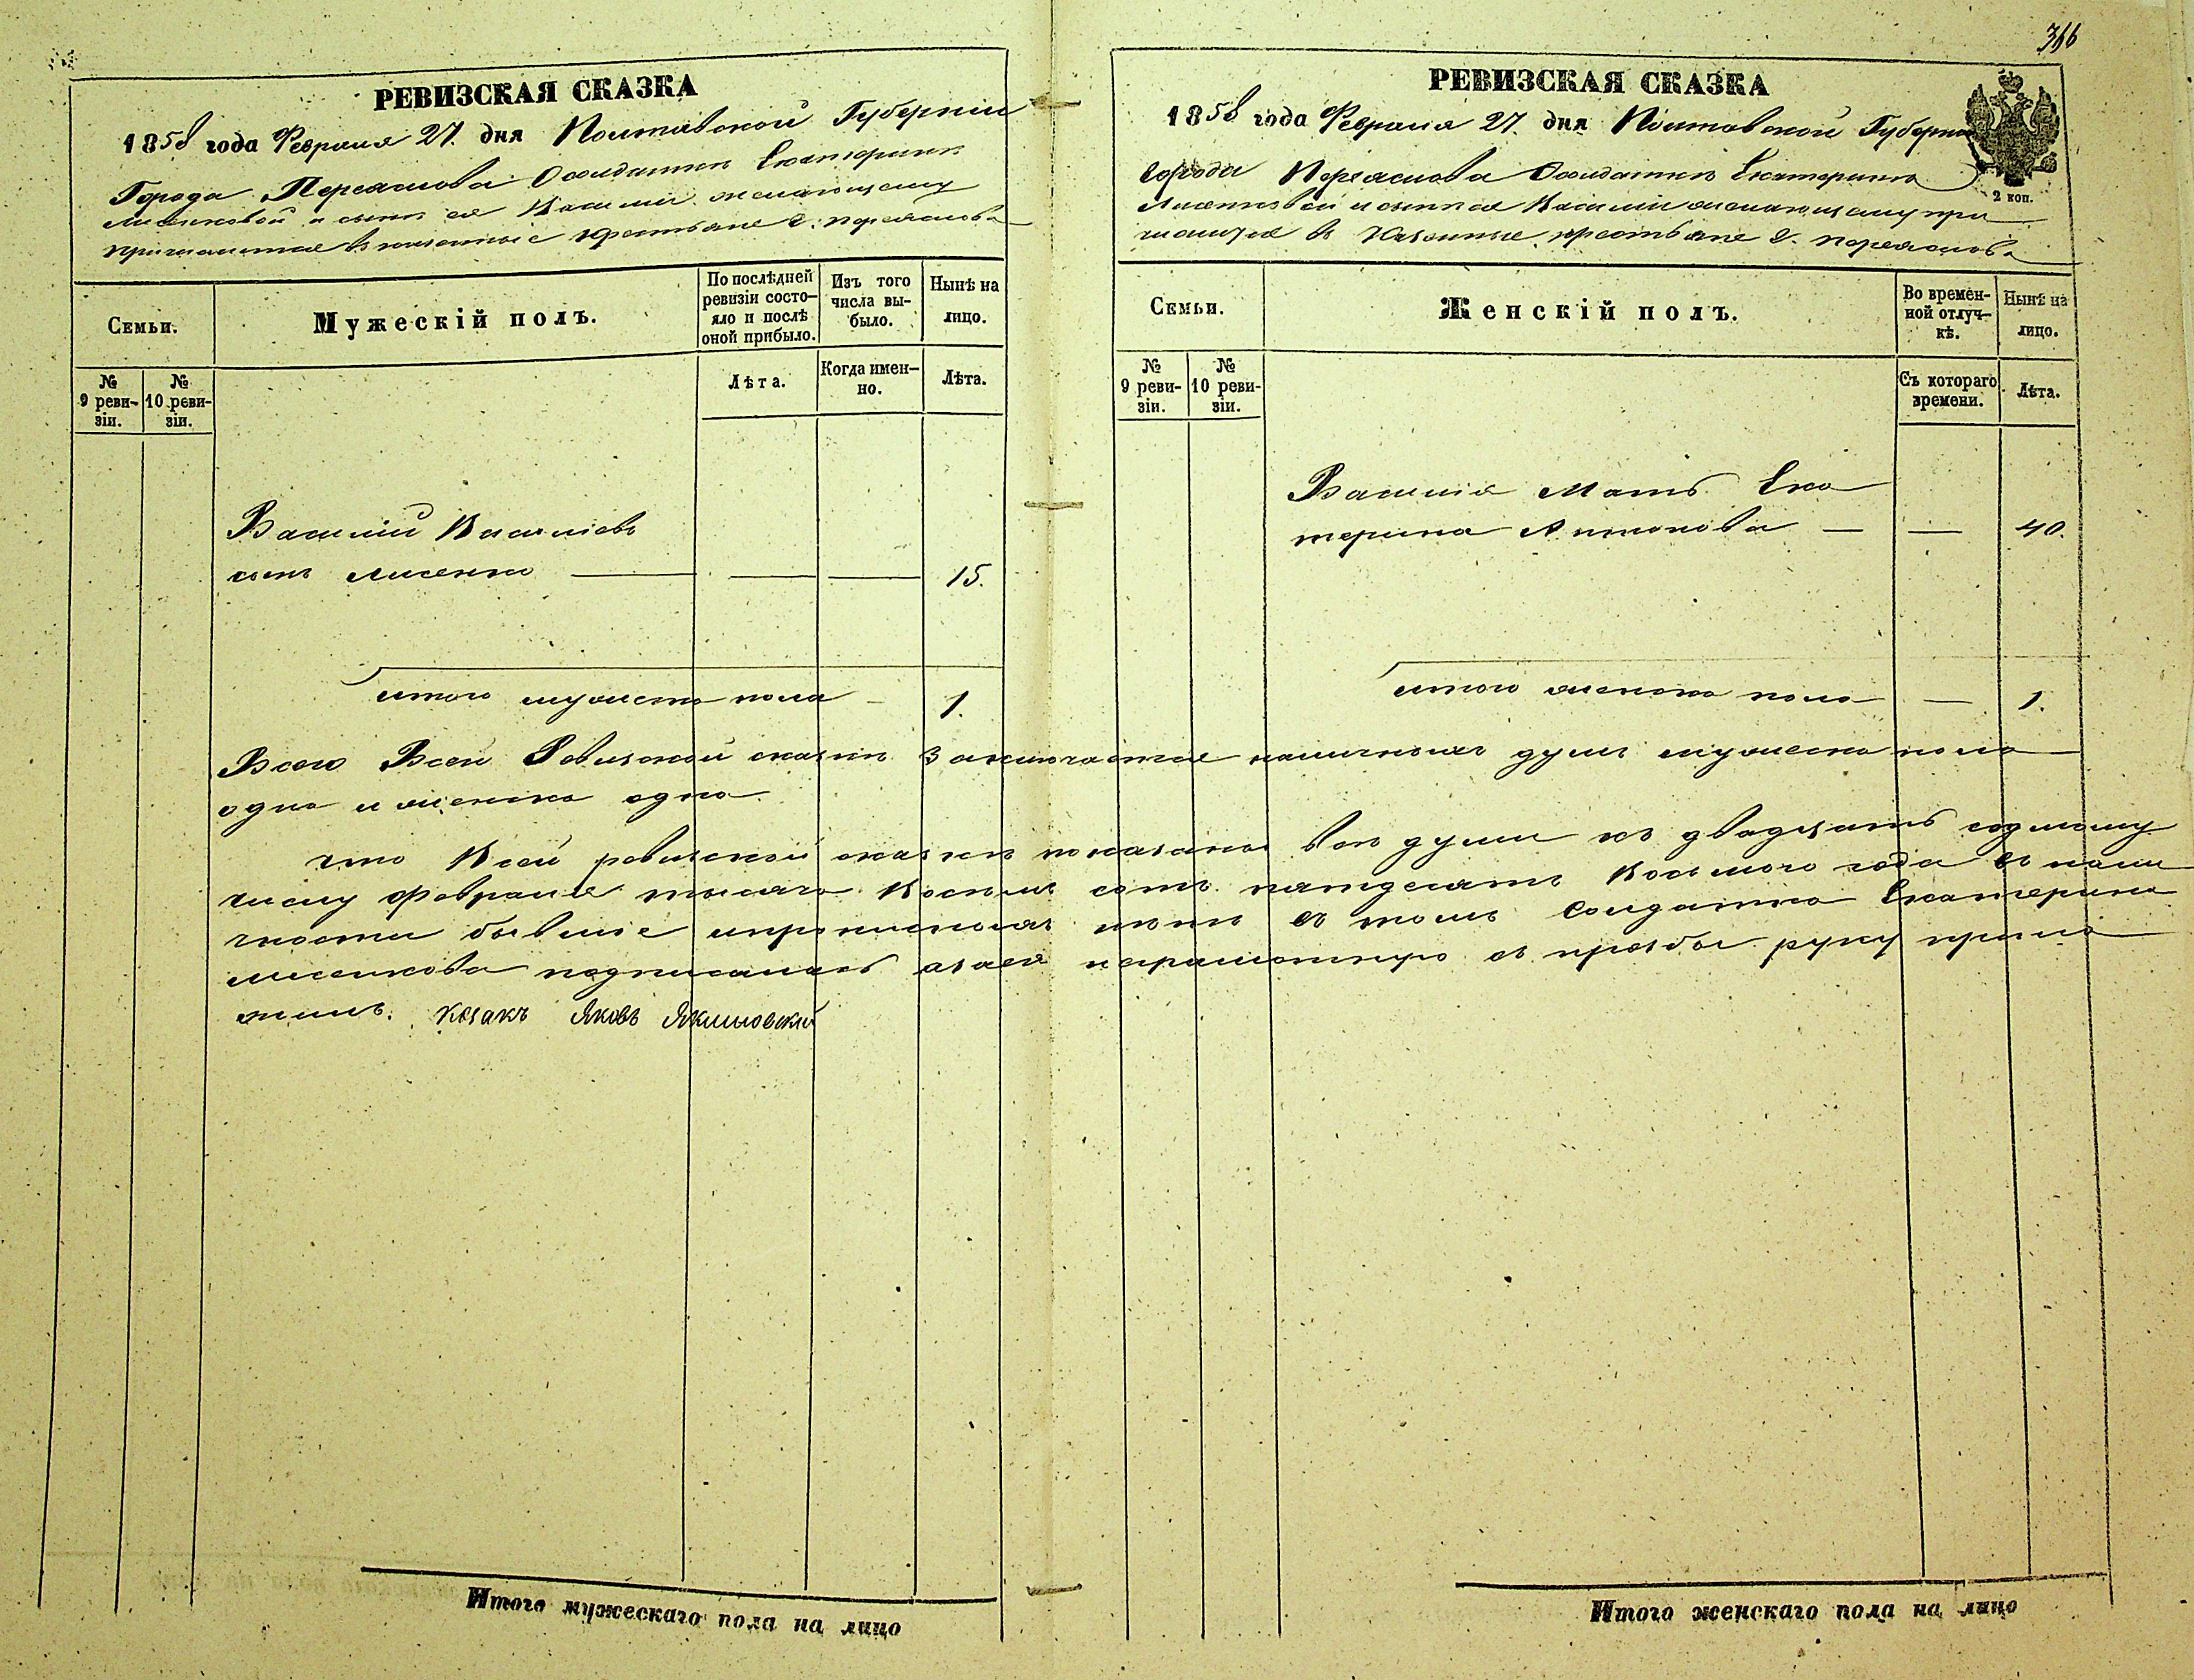 366
РЕВИЗСКАЯ СКАЗКА
1858 года Февраля 27. дня Полтавской Губерніи
Города Переяслова Солдатки Екатерины
Лисенковой и сына ея Василия желающему
причислится в казенные крестьяне г. переяслова
Семьи.
Мужескій полъ.
По послѣдней ревизіи состо-яло и послѣ оной прибыло.
Изъ того числа вы-было.
Нынѣ на лицо.
№ 9 реви-зіи.
№ 10 реви-зіи.
Лѣта.
Когда имен-но.
Лѣта.
Василий Василіевъ
сынъ Лисенко — — — 15.
итого мужеска пола - 1.
РЕВИЗСКАЯ СКАЗКА
1858 года Февраля 27. дня Полтавской Губерніи
2 коп.
города Переяслова Солдатки Екатерины
Лисенковой и сына ея Василия желающему при
числится в Казенные крестьяне г. переяслова
Семьи.
Женскій полъ.
Во времен-ной отлуч-кѣ.
Нынѣ на лицо.
№ 9 реви-зіи.
№ 10 реви-зіи.
Съ котораго времени.
Лѣта.
Василія Мать Ека
терина Антонова — — 40.
итого женска пола — 1.
Всего Всей Ревизской сказки Заключается наличныхъ душъ мужеска пола
одна и женска одна
что Всей ревизской сказки показаны все души къ двадцать седмому
числу Февраля тысяча Восемь сотъ пятдесятъ Восьмого года в нали
чности бывшіе и прописныхъ нетъ в томъ Солдатка Екатерина
лисенкова подписалась а за ея неграмотную с прозбы руку прило
жилъ. Козакъ Яковъ Якимовский
Итого мужескаго пола на лицо
Итого женскаго пола на лицо